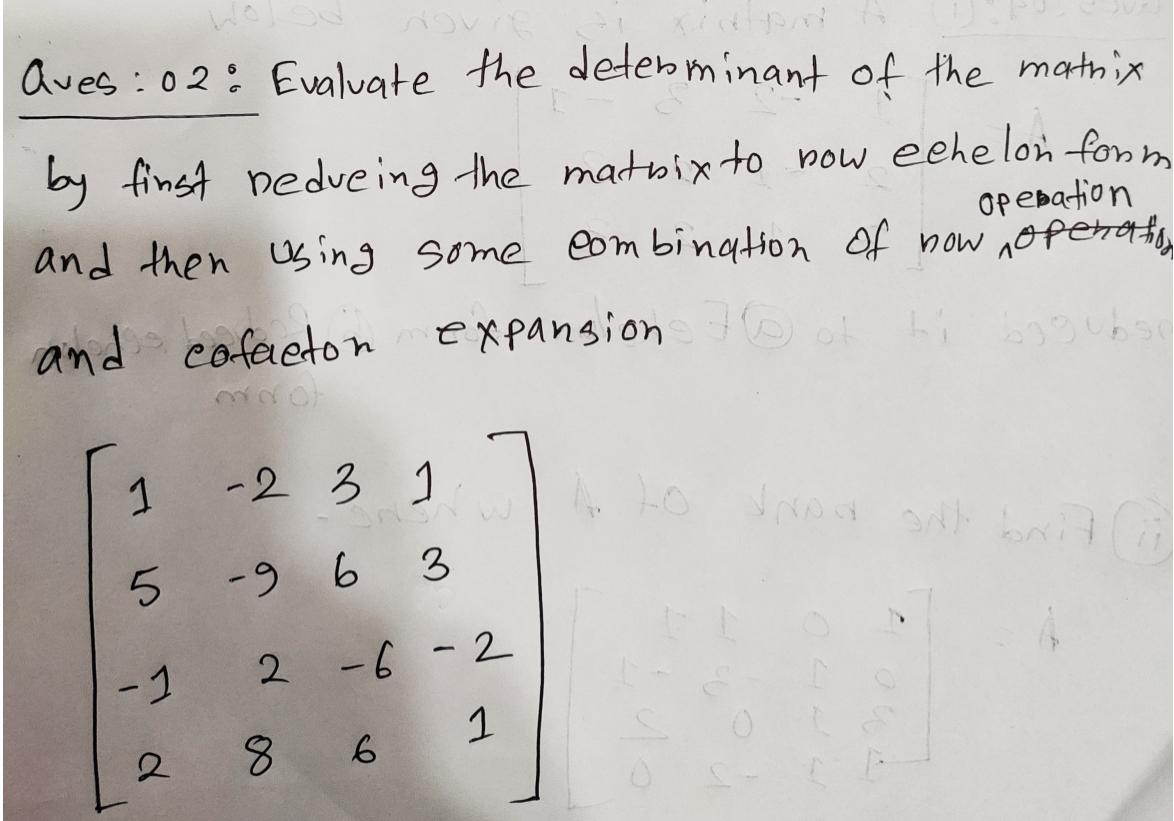 Ques : 02 : Evaluate the determinant of the matrix
by first reducing the matrix to row echelon form
operation
and then using some combination of row operation
and cofactor expansion
1 -2 3 1
5 -9 6 3
-1 2 -6 -2
2 8 6 1